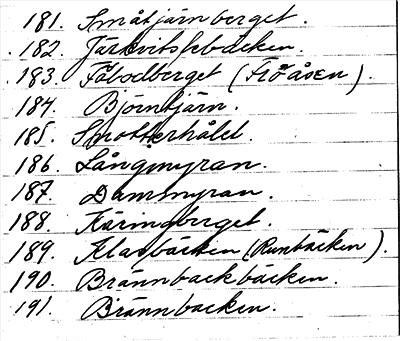 181. Småtjärnberget.
182. Järkvitslebäcken.
183. Fäbodberget (Flöåsen).
184. Björntjärn.
185. Smotterhålet.
186. Långmyran.
187. Dammyran.
188. Käringberget.
189. Klasbäcken (Runbäcken).
190. Brännbackbäcken.
191. Brännbacken.